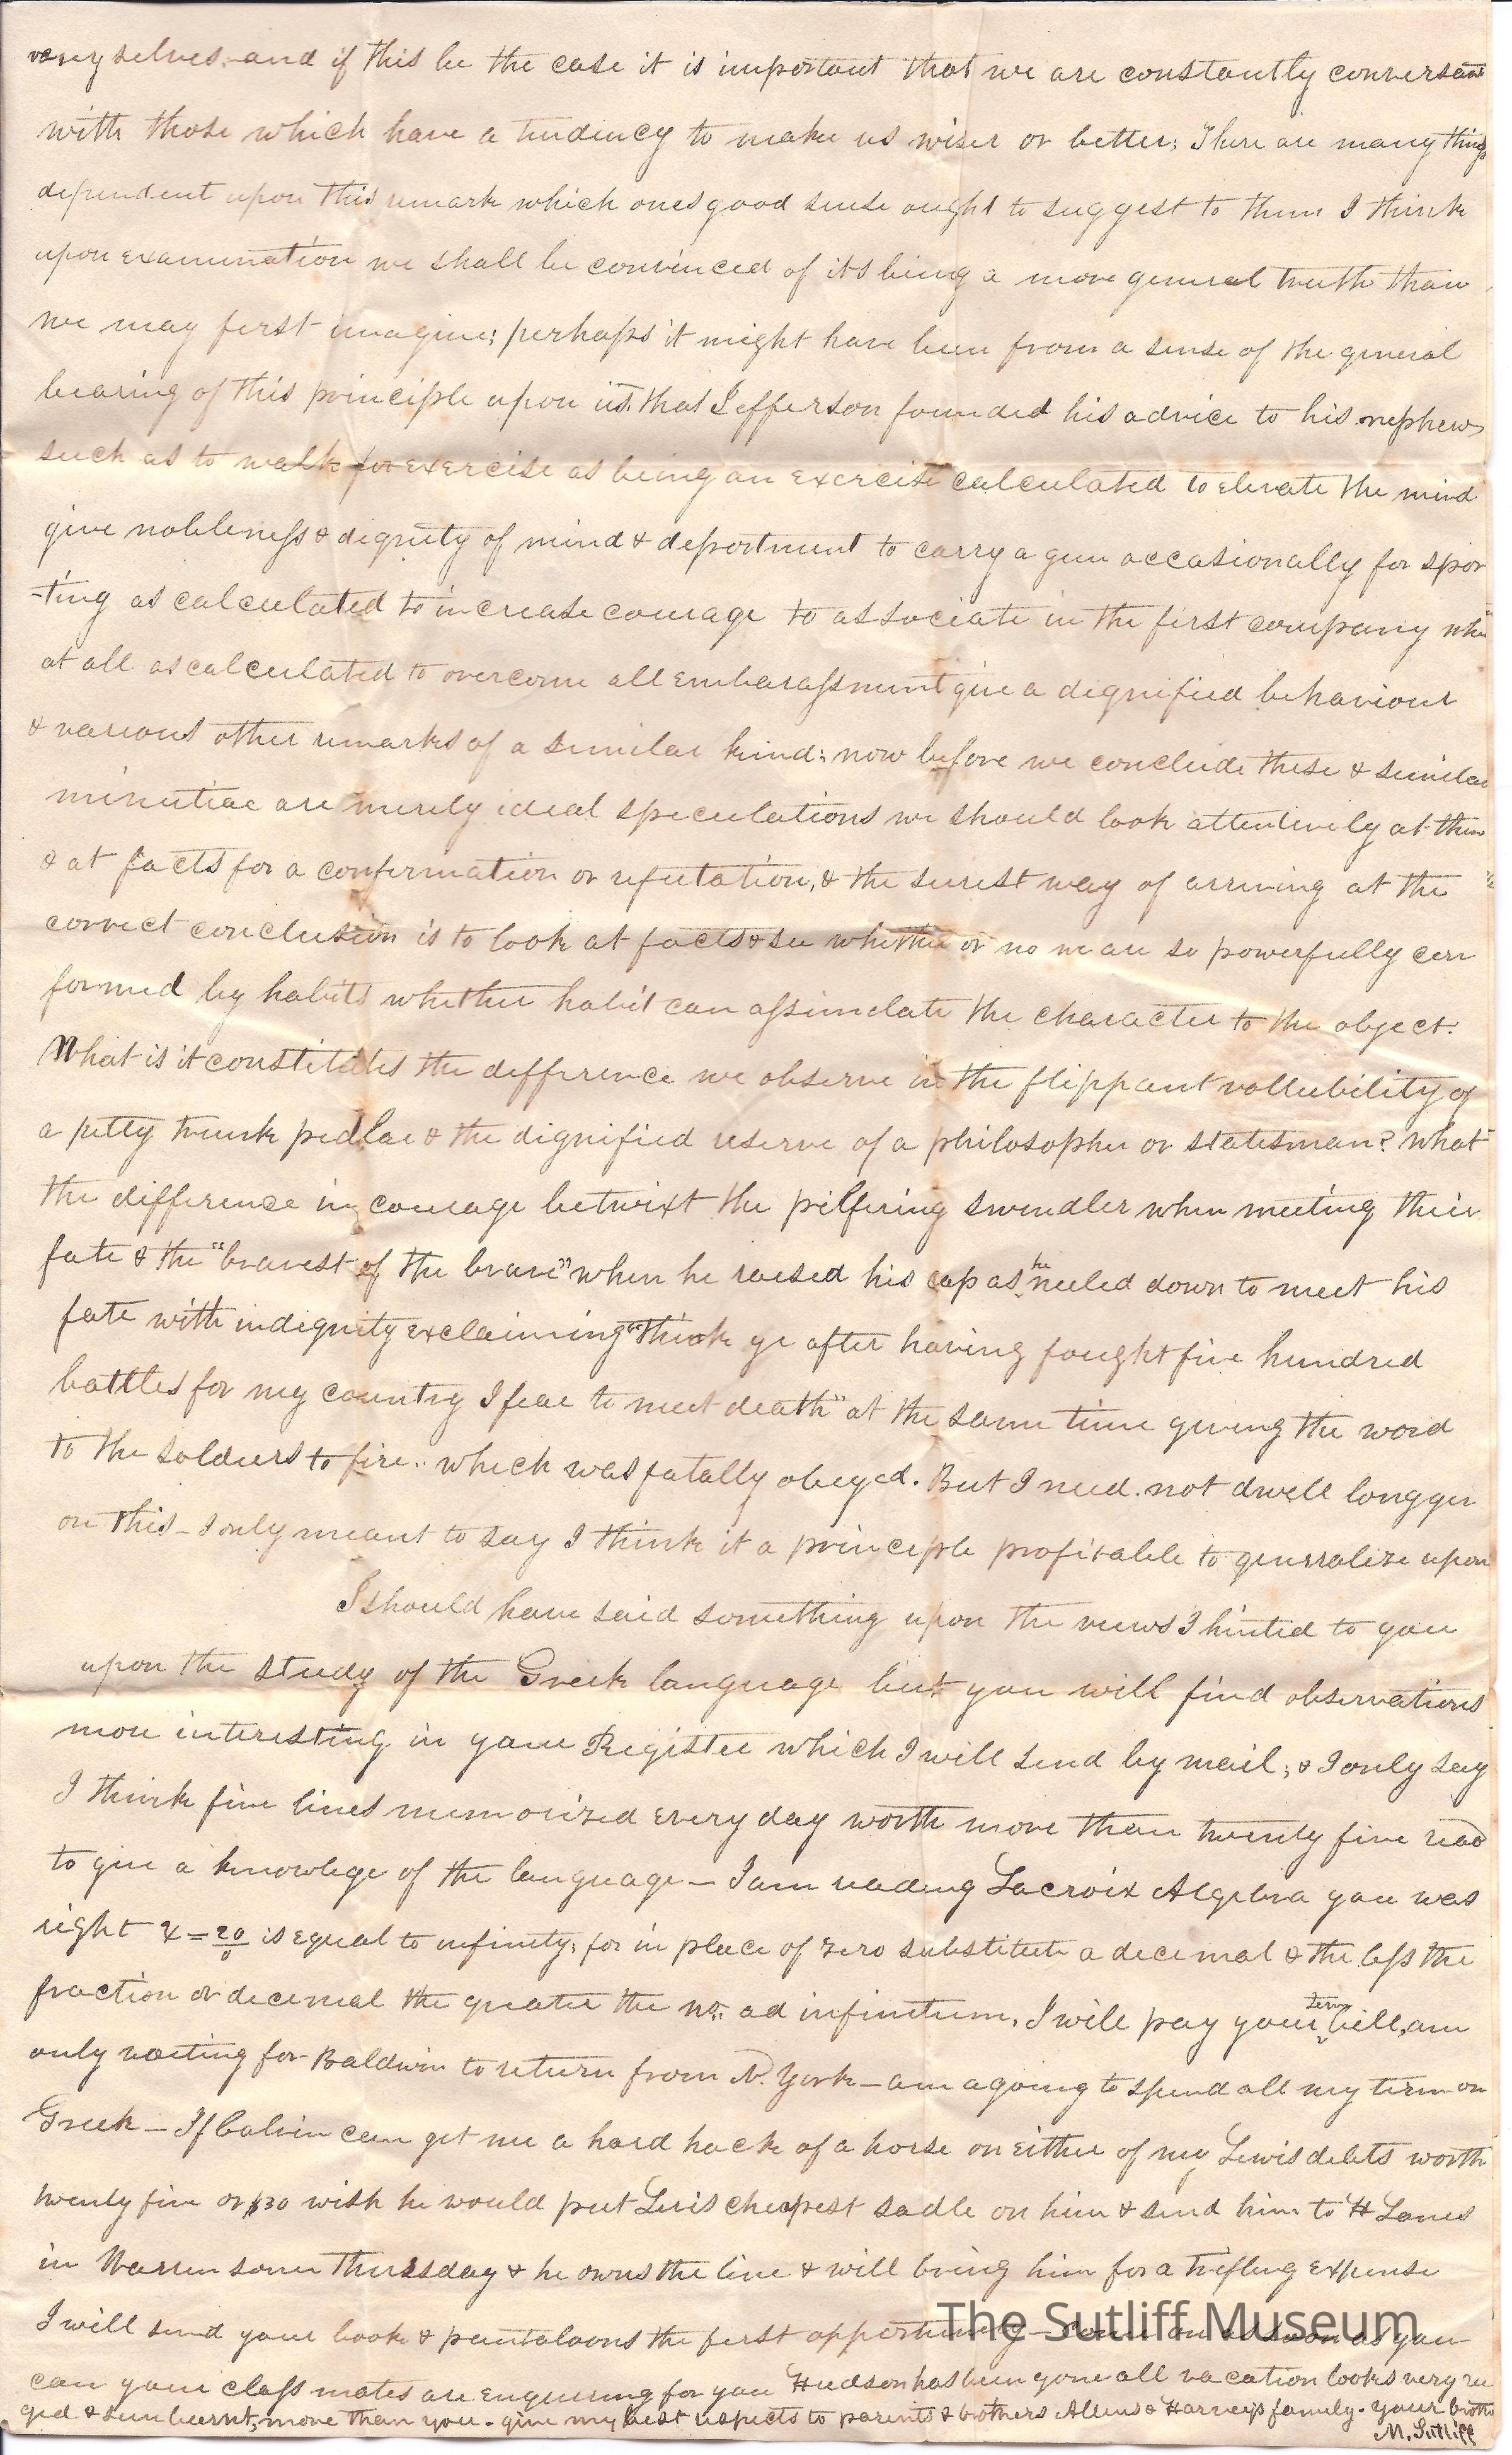 selves and if this be the case it is important that we are constantly conversant
with those which have a tendency to make us wiser or better; There are many things
dependent upon this remark which ones good sense ought to suggest to them I think
upon examination we shall be convinced of its being a more general truth than
we may first imagine; perhaps it might have been from a sense of the general
bearing of this principle upon us that Jefferson founded his advice to his nephew
such as to walk for exercise as being an exercise calculated to elevate the mind
give nobleness & dignity of mind & deportment to carry a gun occasionally for spor
-ting as calculated to increase courage to associate in the first company when
at all as calculated to overcome all embarassment give a dignified behaviour
& various other remarks of a similar kind; now before we conclude these & similar
minutiae are merely ideal speculations we should look attentively at them
& at facts for a confirmation or refutation, & the surest way of arriving at the
correct conclusion is to look at facts & see whether or no we are so powerfully
formed by habits whether habit can assimelate the character to the object.
What is it constitutes the difference we observe in the flippant vollubility of
a petty trunk pedlar & the dignified reserve of a philosopher or statesman? What
the difference in courage betwixt the pilfering swindler when meeting their
fate & the "bravest of the brave" when he raised his cap as he neeled down to meet his
fate with indignity exclaiming "think ye after having fought five hundred
battles for my country I fear to meet death" at the same time giving the word
to the soldiers to fire.. which was fatally obeyed. But I need not dwell longger
on this - I only meant to say I think it a principle profitable to generalize upon
I should have said something upon the views I hinted to you
upon the study of the Greek language but you will find observations
more interesting in your Register which I will send by mail; & I only say
I think five lines memorized every day worth more than twenty five read
to give a knowlege of the language - I am reading Lacroix Algebra you was
right x = 20/0 is equal to infinity; for in place of zero substitute a decimal & the less the
fraction or decimal the greater the no. ad infinitum, I will pay your term bill, am
only waiting for Baldwin to return from N. York - am agoing to spend all my term on
Greek - If Calvin can get me a hard hack of a horse on either of my Lewis debts worth
twenty five or $30 wish he would put Luis cheapest sadle on him & send him to H Lanes
in Warren some Thursday & he owns the line & will bring him for a trifling expense
I will send your book & pantaloons the first opportunity - come on as soon as you
can your class mates are enquiring for you Hudson has been gone all vacation looks very ru
ged & sun burnt, more than you - give my best respects to parents & brothers Allens & Harveys family. Your brother
M. Sutliff
The Sutliff Museum